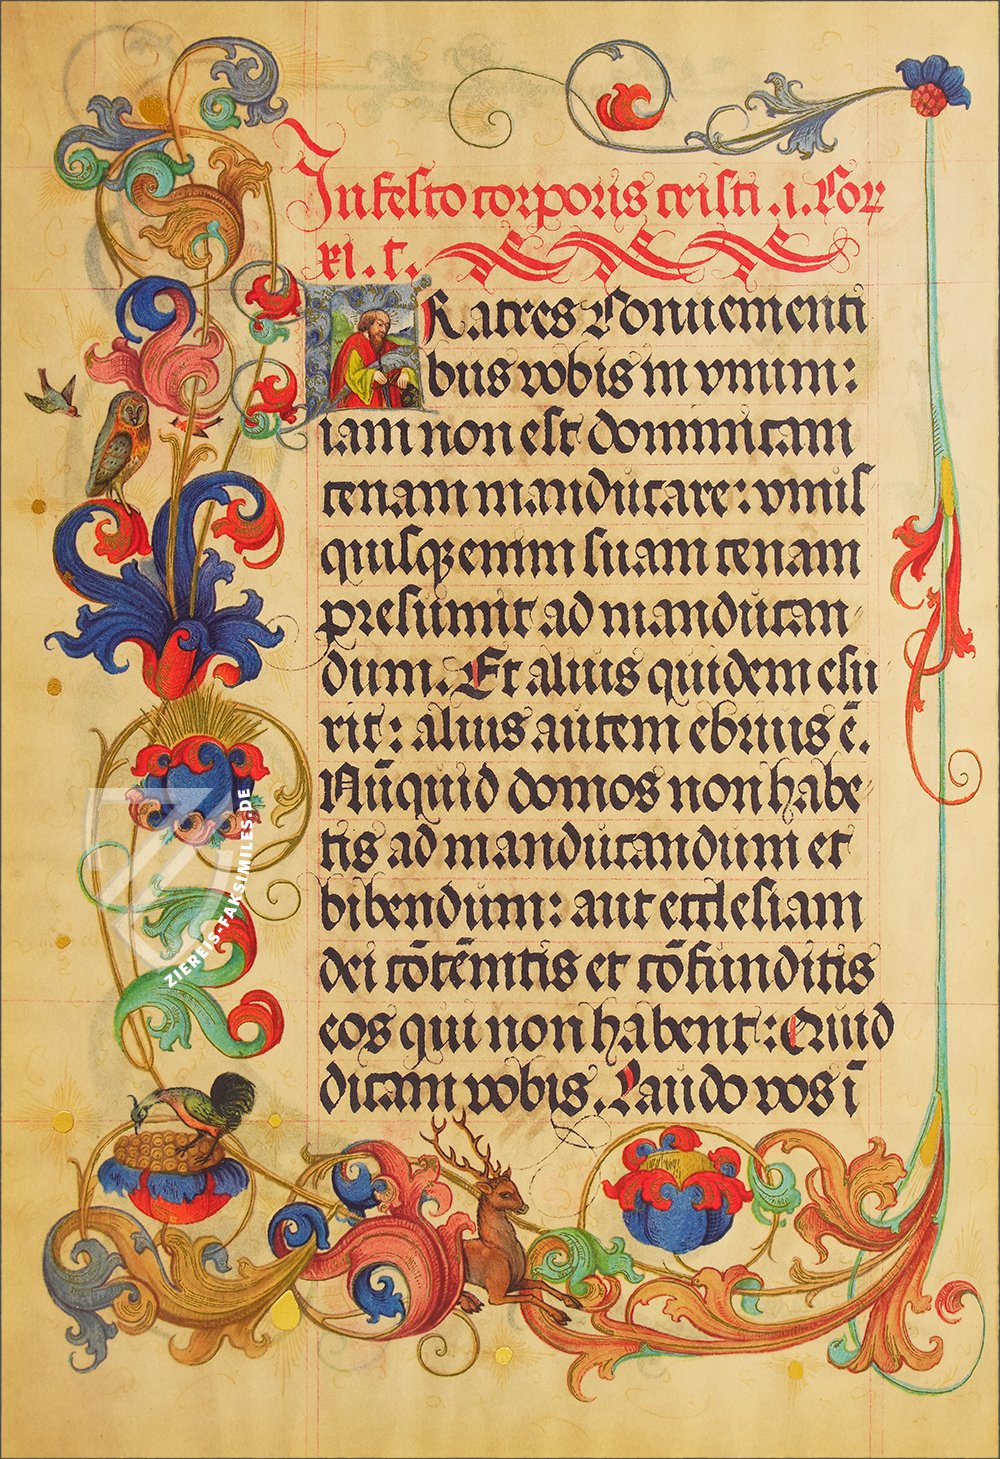 In festo corporis cristi .1. Cor
xi. c.
Fratres Conuementi
bus vobis in vnum:
iam non est dominicam
cenam manducare: vnus
quisqꝫ enim suam cenam
presumit ad manducan
dum. Et alius quidem esu
rit: alius autem ebrius ē.
Nūquid domos non habe
tis ad manducandum et
bibendum: aut ecclesiam
dei cōtēnitis et cōfunditis
eos qui non habent: Quid
dicam vobis. Laudo vos ī
ZIEREIS-FAKSIMILES.DE